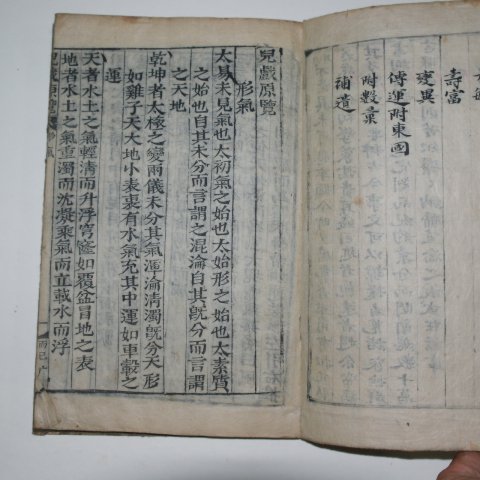 壽富
變異
傳運附東國
附數彙
補遺
兒戱原覽
形氣
太易未見氣也太初氣之始也太始形之始也太素質
之始也自其未分而言謂之混淪自其旣分而言謂
之天地
乾坤者太極之變兩儀未分其氣渾淪清濁旣分天形
如雞子天大地小表裏有水氣充其中運如車轂之
運
天者水土之氣輕清而升浮穹窿如覆盆冒地之表
地者水土之氣重濁而沈凝乘氣而立載水而浮